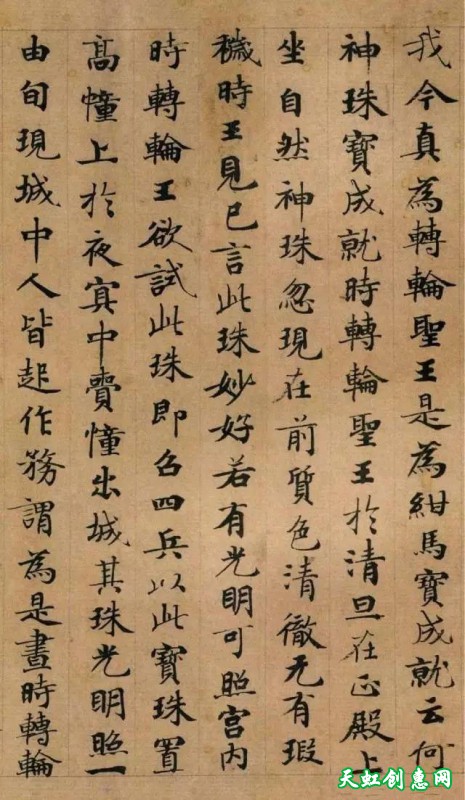 我今真為轉輪聖王是為紺馬寶成就云何
神珠寶成就時轉輪聖王於清旦在正殿上
坐自然神珠忽現在前質色清徹无有瑕
穢時王見已言此珠妙好若有光明可照宮内
時轉輪王欲試此珠即召四兵以此寶珠置
高幢上於夜㝠中賷幢出城其珠光明照一
由旬現城中人皆起作務謂為是晝時轉輪
天虹创惠网